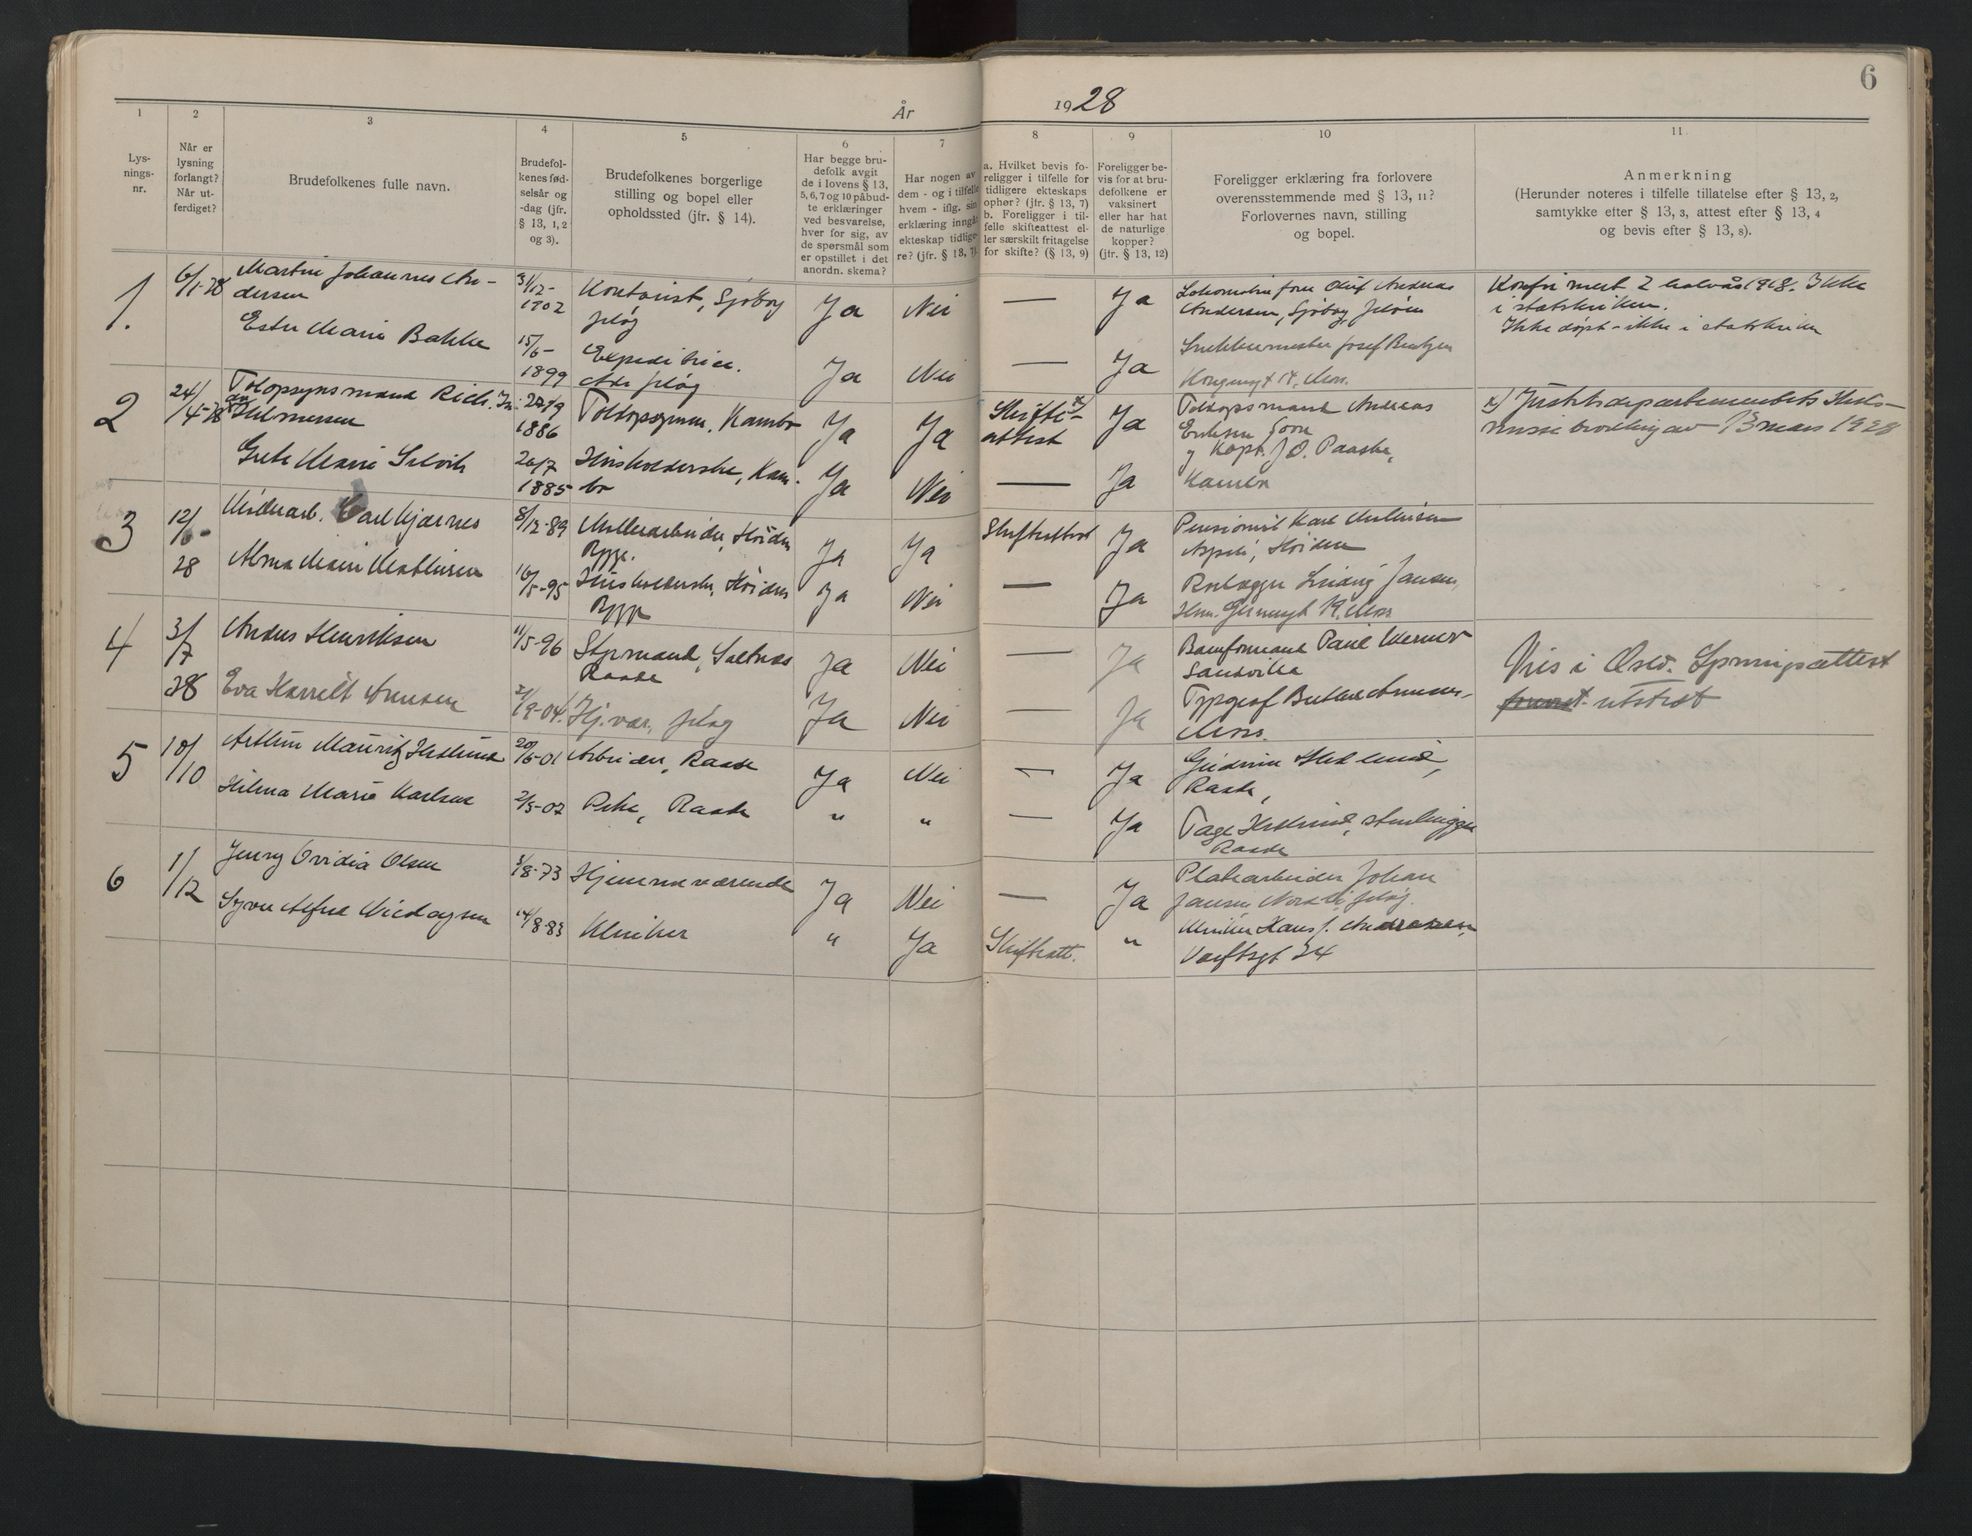 6
År 1928
1 2 3 4 5 6 7 8 9 10 11
Lys-
nings-
nr.
Når er
lysning
forlangt?
Når ut-
ferdiget?
Brudefolkenes fulle navn.
Brudefol-
kenes fød-
selsår og
-dag (jfr.
§ 13, 1, 2
og 3).
Brudefolkenes borgerlige
stilling og bopel eller
opholdssted (jfr. § 14).
Har begge bru-
defolk avgit
de i lovens § 13,
5, 6, 7 og 10 påbud-
te erklæringer
ved besvarelse,
hver for sig, av
de spørsmål som
er opstillet i det
anordn. skema?
Har nogen av
dem - og i tilfelle
hvem - iflg. sin
erklæring inngått
ekteskap tidlige-
re? (jfr. § 13, 7).
a. Hvilket bevis fo-
religger i tilfelle for
tidligere ekteskaps
ophør? (jfr. § 13, 7)
b. Foreligger i til-
felle skifteattest el-
ler særskilt fritagelse
for skifte? (§ 13, 9)
Foreligger be-
vis for at bru-
defolkene er
vaksinert
eller har hat
de naturlige
kopper?
(jfr. § 13, 12)
Foreligger erklæring fra forlovere
overensstemmende med § 13, 11?
Forlovernes navn, stilling
og bopel.
Anmerkning
(Herunder noteres i tilfelle tillatelse efter § 13, 2,
samtykke efter § 13, 3, attest efter § 13, 4
og bevis efter § 13, 8).
1. 6/1-28 Martin Johannes An-
dersen
31/12-
1902
Kontorist, Sjøbog
Jeløy
Ja Nei — Ja
Olaf Andreas
Andersen, Sjøbog, Jeløen
Konfirmert 2 halvår 1918. Ikke
i statskirken.
Ikke døpt - ikke i statskirken
Ester Marie Bakke
15/6-
1899
Expeditrice.
Jeløy
Ja Nei — Ja
Snekkermester Josef Bentzen
Kongensgt 14, Moss.
2 24/4-28 Toldopsynsmand Rich.
Hilmersen
1886
Ja Ja Skifte-
attest x) Ja
Toldopsmand Andreas
Eriksen Soon
og Kapt. J. O. Paaske,
Kambo
x) Justitsdepartementets
bevilling av 13 mars 1928
Grete Marie
20/7
1885
Husholderske, Kam-
bo
Ja Nei — Ja
3 12/6-28 Carl Kjærnes
8/12-89
Møllearbeider, Høiden
Rygge.
Ja Ja Skifteattest Ja
Pensionist Karl
Høiden
Alma Marie Mathisen
16/5-95
Husholderske, Høiden
Rygge
Ja Nei — Ja
Rørlægger Jansen,
4 3/7 28 Anders Henriksen
11/5-96
Styrmand, Saltnes
Raade
Ja Nei — Ja
Paul Werner
Sandvika
Vies i Oslo. Sprøvingsattest
utstedt
Eva Harriet Arnesen
21/9-04.
Hj.vær., Jeløy
Ja Nei — Ja
Typograf
Moss.
5 10/10 Arthur Mauritz Heklund
20/6-01
Arbeider, Raade
Ja Nei — Ja
Gudrun Heklund,
Raade,
Hilma Marie Karlsen
2/3-07
Pike, Raade
" " — Ja
Tage Heklund, stenhugger
Raade
6 1/12 Jenny Ovidia Olsen
3/8-73
Hjemmeværende
Ja Nei — Ja
Platearbeider Johan
Jansen Jeløy.
14/8-83
Kliniker
" Ja Skifteatt. "
Hans J. Andreasen,
Værftsgt 24